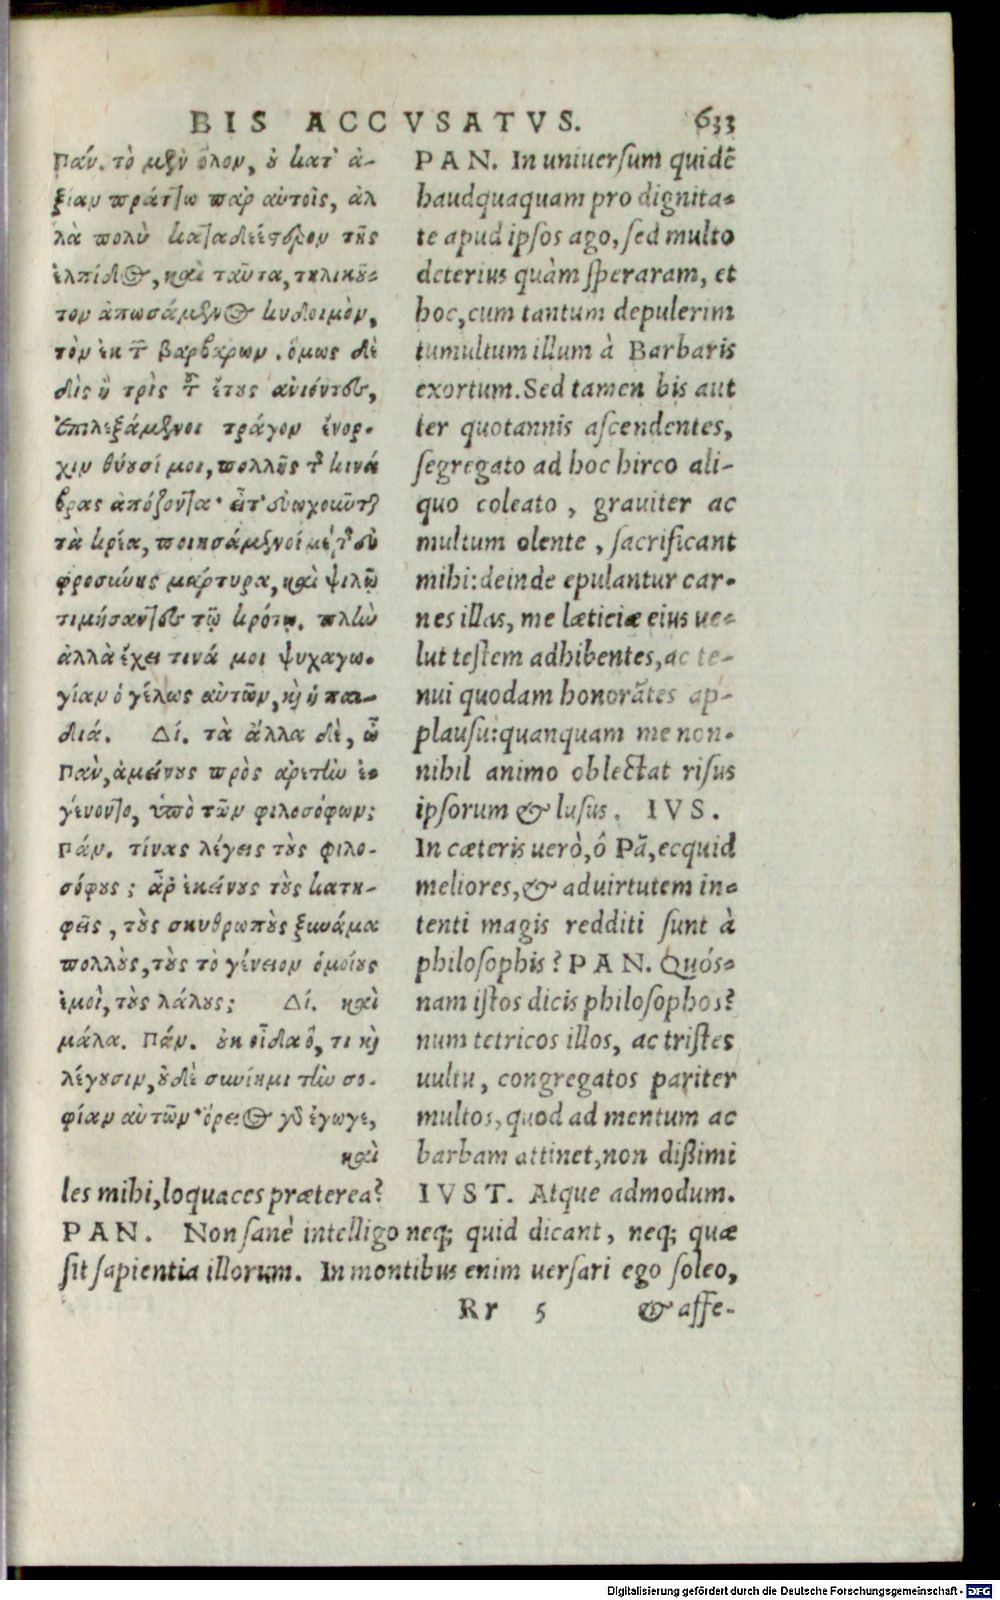 BIS ACCVSATVS. 633
Πάν. τὸ μὲν ὅλον, ὐ κατ' ἀ-
ξίαν πράττω παρ αὐτοῖς, ἀλ
λὰ πολὺ καταδεέστερον τῆς
ἐλπίδος, καὶ ταῦτα, τηλικοῦ-
τον ἀπωσάμενος κυδοιμὸν,
τὸν ἐκ τ βαρβάρων. ὅμως δὲ
δὶς ἢ τρὶς τ ἔτους ἀνιόντες,
ἐπιλεξάμενοι τράγον ἔνορ-
χιν θύουσί μοι, πολλῆς τ κινά
βρας ἀπόζοντα· εἶτ' εὐωχοῦντ
τὰ κρέα, ποιησάμενοί με τ εὐ
φροσύνης μάρτυρα, καὶ ψιλῷ
τιμήσαντες τῷ κρότῳ. πλὴν
ἀλλὰ ἔχει τινά μοι ψυχαγω-
γίαν ὁ γέλως αὐτῶν, καὶ ἡ παι-
διά. Δί. τὰ ἄλλα δὲ, ὦ
Πὰν, ἀμείνους πρὸς ἀρετὴν ἐ-
γένοντο, ὑπὸ τῶν φιλοσόφων;
Πάν. τίνας λέγεις τοὺς φιλο-
σόφους; ἆρ ἐκείνους τοὺς κατη-
φεῖς, τοὺς σκυθρωποὺς ξυνάμα
πολλοὺς, τοὺς τὸ γένειον ὁμοίους
ἐμοὶ, τοὺς λάλους; Δί. καὶ
μάλα. Πάν. οὐκ οἶδα, ὅ, τι καὶ
λέγουσιν, οὐδὲ συνίημι τὴν σο-
φίαν αὐτῶν· ὄρειος γὰρ ἔγωγε,
καὶ
PAN. In uniuersum quidē
haudquaquam pro dignita-
te apud ipsos ago, sed multo
deterius quàm speraram, et
hoc, cum tantum depulerim
tumultum illum à Barbaris
exortum. Sed tamen bis aut
ter quotannis ascendentes,
segregato ad hoc hirco ali-
quo coleato, grauiter ac
multum olente, sacrificant
mihi: deinde epulantur car-
nes illas, me læticiæ eius ue-
lut testem adhibentes, ac te-
nui quodam honorātes ap-
plausu: quanquam me non-
nihil animo oblectat risus
ipsorum & lusus. IVS.
In cæteris uerò, ô Pā, ecquid
meliores, & ad uirtutem in-
tenti magis redditi sunt à
philosophis? PAN. Quós-
nam istos dicis philosophos?
num tetricos illos, ac tristes
uultu, congregatos pariter
multos, quod ad mentum ac
barbam attinet, non dißimi
les mihi, loquaces præterea? IVST. Atque admodum.
PAN. Non sanè intelligo neq; quid dicant, neq; quæ
sit sapientia illorum. In montibus enim uersari ego soleo,
Rr 5 & affe-
Digitalisierung gefördert durch die Deutsche Forschungsgemeinschaft - DFG